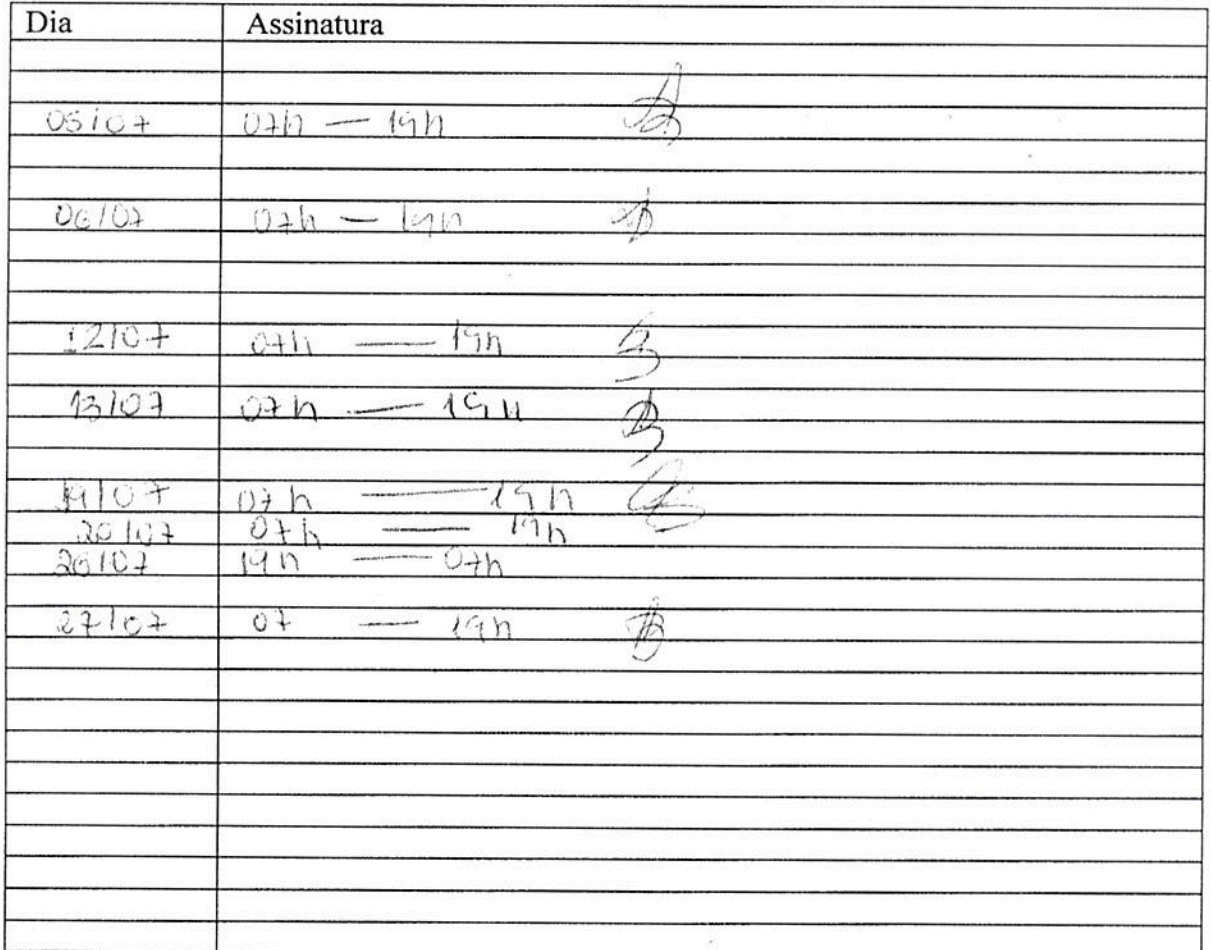 Dia Assinatura
05/07 07h — 19h
06/07 07h — 19h
12/07 07h — 19h
13/07 07h — 19h
19/07 07h — 19h
20/07 07h — 19h
26/07 19h — 07h
27/07 07 — 19h